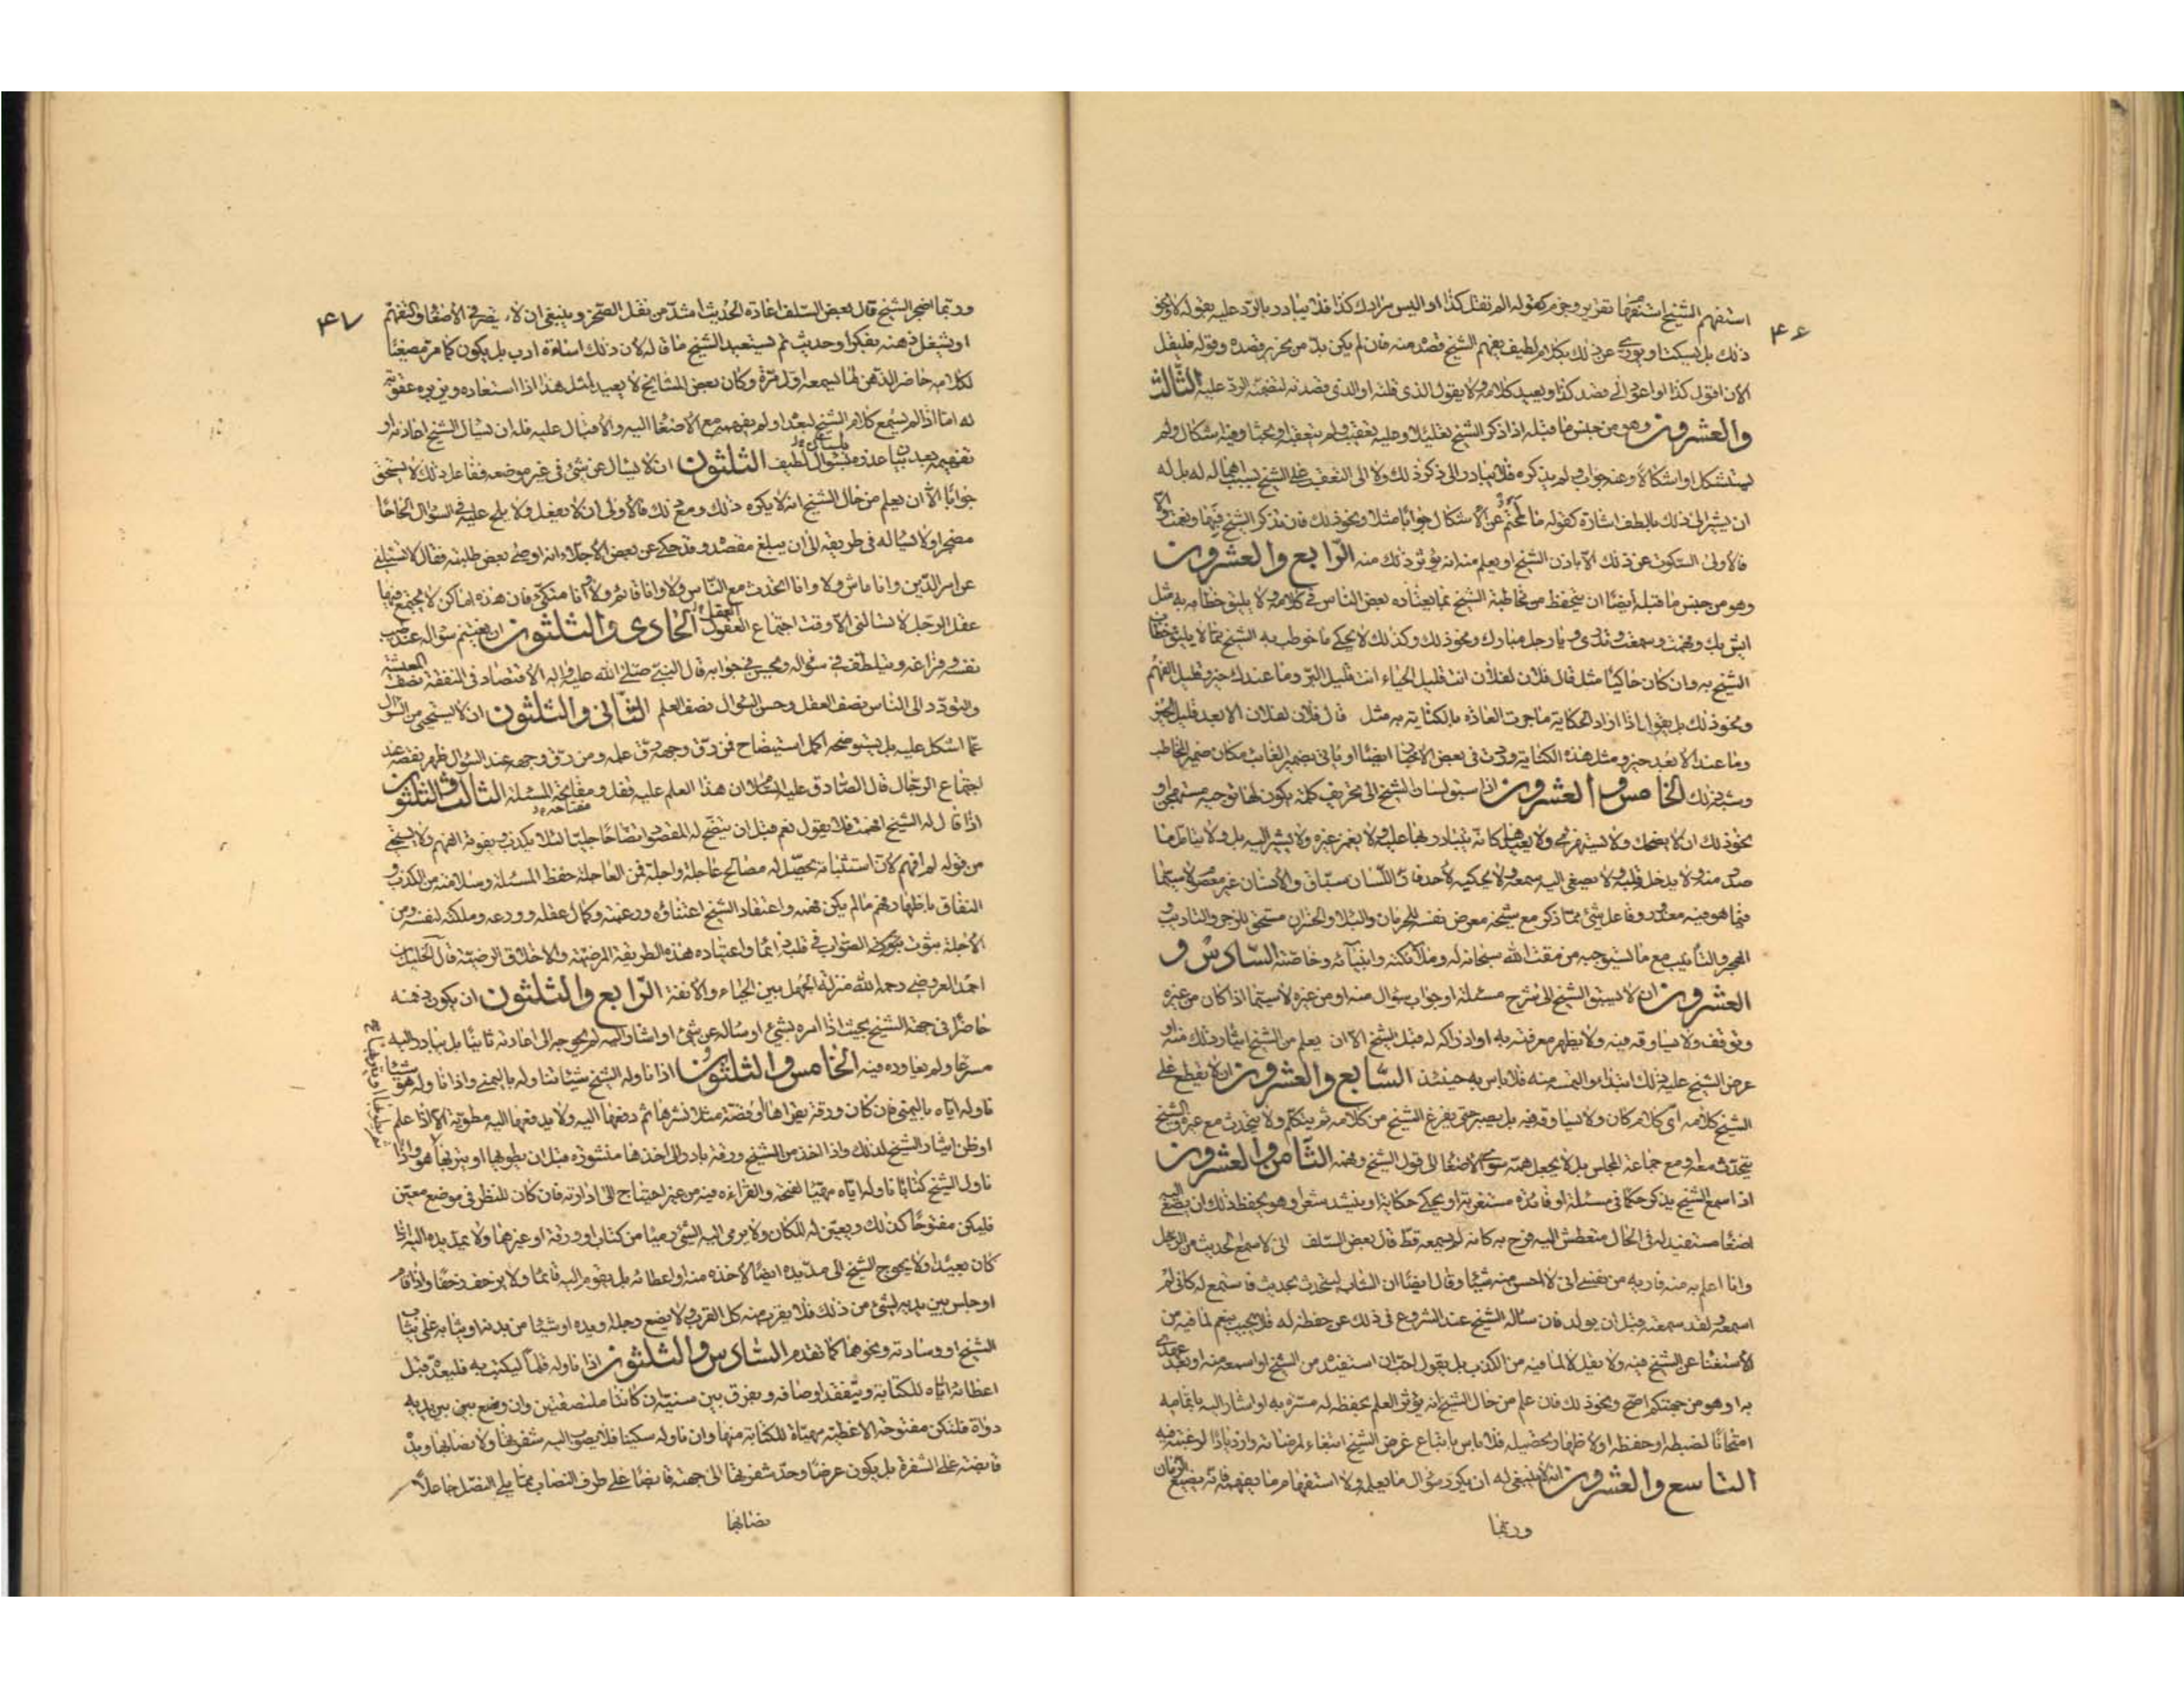 ۴۶
استفهم الشيخ استفهام تقرير وجزم كقوله الم تقل كذا او اليس مرادك كذا فلا يبادر بالرد عليه بقوله لا ونحو
ذلك بل يسكت او يورى عن ذلك بكلام لطيف يفهم الشيخ قصده منه فان لم يكن بد من تحرير قصده وقوله فليقل
الان اقول كذا او اعود الى قصد كذا ويعيد كلامه ولا يقول الذى قلته او الذى قصدته لتضمنه الرد عليه الثالث
والعشرون وهو من جنس ما قبله اذا ذكر الشيخ تعليلا وعليه تعقب ولم يتعقبه او بحثا وفيه اشكال ولم
يستشكل او اشكالا وعنه جواب ولم يذكره فلا يبادر الى ذكر ذلك ولا الى التعقب على الشيخ بسبب اهماله له بل له
ان يشير الى ذلك بالطف اشارة كقوله ما لمحتم عن الاشكال جوابا مثلا ونحو ذلك فان تذكر الشيخ فبها ونعمت والا
فالاولى السكوت عن ذلك الا باذن الشيخ او يعلم منه انه يؤثر ذلك منه الرابع والعشرون
وهو من جنس ما قبله ايضا ان يتحفظ من مخاطبة الشيخ بما يعتاده بعض الناس فى كلامه ولا يليق خطابه به مثل
ايش بك وفهمت وسمعت وتدرى ويا رجل مبارك ونحو ذلك وكذلك لا يحكى ما خوطب به الشيخ بما لا يليق خطاب
الشيخ به وان كان حاكيا مثل قال فلان لفلان انت قليل الحياء انت قليل البر وما عندك خير وقليل الفهم
ونحو ذلك بل يقول اذا اراد الحكاية ما جرت العادة بالكناية به مثل قال فلان لفلان الابعد قليل الخير
وما عند الابعد خير ومثل هذه الكناية وردت فى بعض الاخبار ايضا او ياتى بضمير الغائب مكان ضمير المخاطب
وشبه ذلك الخامس والعشرون اذا سبق لسان الشيخ الى تحريف كلمة يكون لها توجيه مستهجن او
نحو ذلك ان لا يضحك ولا يستهزئ ولا يعيدها كانه يتبادر بها عليه ولا يغمز غيره ولا يشير اليه بل ولا يتامل ما
صدر منه ولا يدخله قلبه ولا يصغى اليه سمعه ولا يحكيه لاحد فان اللسان سباق والانسان غير معصوم لا سيما
فيما هو فيه معذور وفاعل شئ مما ذكر مع شيخه معرض نفسه للحرمان والبلاء والخسران مستحق للزجر والتاديب
والهجر والتانيب مع ما يستوجبه من مقت الله سبحانه له وملائكته وانبيائه وخاصته السادس و
العشرون ان لا يسبق الشيخ الى شرح مسئلة او جواب سؤال منه او من غيره لا سيما اذا كان من غيره
وتوقف ولا يساوقه فيه ولا يظهر معرفته به او ادراكه له قبل الشيخ الا ان يعلم من الشيخ ايثار ذلك منه او
عرض الشيخ عليه ذلك ابتداء والتمسه منه فلا باس به حينئذ السابع والعشرون ان لا يقطع على
الشيخ كلامه اى كلام كان ولا يساوقه فيه بل يصبر حتى يفرغ الشيخ من كلامه ثم يتكلم ولا يتحدث مع غيره والشيخ
يتحدث معه او مع جماعة المجلس بل لا يجعل همه سوى الاصغاء الى قول الشيخ وفهمه الثامن والعشرون
اذا سمع الشيخ يذكر حكما فى مسئلة او فائدة مستغربة او يحكى حكاية او ينشد شعرا وهو يحفظ ذلك ان يصغى اليه
اصغاء مستفيد له فى الحال متعطش اليه فرح به كانه لم يسمعه قط قال بعض السلف انى لاسمع الحديث من الرجل
وانا اعلم به منه فاريه من نفسى انى لا احسن منه شيئا وقال ايضا ان الشاب ليتحدث بحديث فاستمع له كانى لم
اسمعه ولقد سمعته قبل ان يولد فان ساله الشيخ عند الشروع فى ذلك عن حفظه له فلا يجيب بنعم لما فيه من
الاستغناء عن الشيخ فيه ولا يقل لا لما فيه من الكذب بل يقول احب ان استفيده من الشيخ او اسمعه منه او بعد عهدى
به او هو من جهتكم اصح ونحو ذلك فان علم من حال الشيخ انه يؤثر العلم بحفظه له مسرة به او اشار اليه باتمامه
امتحانا لضبطه او حفظه او لاظهار تحصيله فلا باس باتباع غرض الشيخ ابتغاء لمرضاته وازديادا لرغبته فيه
التاسع والعشرون انه لا ينبغى له ان يكرر سؤال ما يعلمه ولا استفهام ما يفهمه فانه يضيع الزمان
وربما
۴۷
وربما اضجر الشيخ قال بعض السلف اعادة الحديث اشد من نقل الصخر وينبغى ان لا يقصر فى الاصغاء والتفهم
او يشغل ذهنه بفكر او حديث ثم يستعيد الشيخ ما قاله لان ذلك اساءة ادب بل يكون كما مر مصغيا
لكلامه حاضر الذهن لما يسمعه اول مرة وكان بعض المشايخ لا يعيد لمثل هذا اذا استعاده ويزبره عقوبة
له اما اذا لم يسمع كلام الشيخ لبعده او لم يفهمه مع الاصغاء اليه والاقبال عليه فله ان يسال الشيخ اعادته او
تفهيمه بعد بيان عذره بسؤال لطيف الثلثون ان لا يسال عن شئ فى غير موضعه ففاعل ذلك لا يستحق
جوابا الا ان يعلم من حال الشيخ انه لا يكره ذلك ومع ذلك فالاولى ان لا يفعل ولا يلح عليه فى السؤال الحاحا
مضجرا ولا يساله فى طريقه الى ان يبلغ مقصده وقد حكى عن بعض الاجلاء انه اوصى بعض طلبته فقال لا تسئلنى
عن امر الدين وانا ماش ولا وانا اتحدث مع الناس ولا وانا قائم ولا وانا متكئ فان هذه اماكن لا يجتمع فيها
عقل الرجل لا تسالنى الا وقت اجتماع العقول الحادى والثلثون ان يغتنم سؤاله عند طيب
نفسه وفراغه ويتلطف فى سؤاله ويحسن فى جوابه قال النبى صلى الله عليه واله الاقتصاد فى النفقة نصف المعيشة
والتودد الى الناس نصف العقل وحسن السؤال نصف العلم الثانى والثلثون ان لا يستحيى من السؤال
عما اشكل عليه بل يستوضحه اكمل استيضاح فمن رق وجهه رق علمه ومن رق وجهه عند السؤال ظهر نقصه عند
اجتماع الرجال قال الصادق عليه السلام ان هذا العلم عليه قفل ومفاتحه المسئلة الثالث والثلثون
اذا قال له الشيخ افهمت فلا يقول نعم قبل ان يتضح له المقصود ايضاحا جليا لئلا يكذب ويفوته الفهم ولا يستحى
من قوله لم افهم لان استثباته يحصل له مصالح عاجلة واجلة فمن العاجلة حفظ المسئلة وسلامته من الكذب و
النفاق باظهار فهم ما لم يكن فهمه واعتقاد الشيخ اعتناؤه ورغبته وكمال عقله وورعه وملكته لنفسه ومن
الاجلة ثبوت الصواب فى قلبه دائما واعتياده هذه الطريقة المرضية والاخلاق الرضية قال الخليل بن
احمد العروضى رحمه الله منزلة الجهل بين الحياء والانفة الرابع والثلثون ان يكون ذهنه
حاضرا فى جهة الشيخ بحيث اذا امره بشئ او ساله عن شئ او اشار اليه لم يحوجه الى اعادته ثانيا بل يبادر اليه
مسرعا ولم يعاوده فيه الخامس والثلثون اذا ناوله الشيخ شيئا تناوله باليمنى واذا ناوله هو شيئا
ناوله اياه باليمنى فان كان ورقة يقراها او قصة مثلا نشرها ثم دفعها اليه ولا يدفعها اليه مطوية الا اذا علم
او ظن ايثار الشيخ لذلك واذا اخذ من الشيخ ورقة بادر الى اخذها منشورة قبل ان يطويها او يتربها هو واذا
ناول الشيخ كتابا ناوله اياه مهيئا لفتحه والقراءة فيه من غير احتياج الى ادارته فان كان للنظر فى موضع معين
فليكن مفتوحا كذلك ويعين له المكان ولا يرمى اليه الشئ رميا من كتاب او ورقة او غيرهما ولا يمد يده اليه اذا
كان بعيدا ولا يحوج الشيخ الى مد يده ايضا لاخذه منه او اعطائه بل يقوم اليه قائما ولا يزحف زحفا واذا قام
او جلس بين يديه لشئ من ذلك فلا يقرب منه كل القرب ولا يضع رجله او يده او شيئا من بدنه او ثيابه على ثياب
الشيخ او وسادته ونحوهما كما تقدم السادس والثلثون اذا ناوله قلما ليكتب به فليعده قبل
اعطائه اياه للكتابة ويتفقد اوصافه ويفرق بين سنيه ان كانتا ملتصقتين وان وضع بين يديه
دواة فلتكن مفتوحة الاغطية مهياة للكتابة منها وان ناوله سكينا فلا يصوب اليه شفرتها ولا نصابها ويده
قابضة على الشفرة بل يكون عرضا وحد شفرتها الى جهته قابضا على طرف النصاب مما يلى النصل جاعلا
نصابها